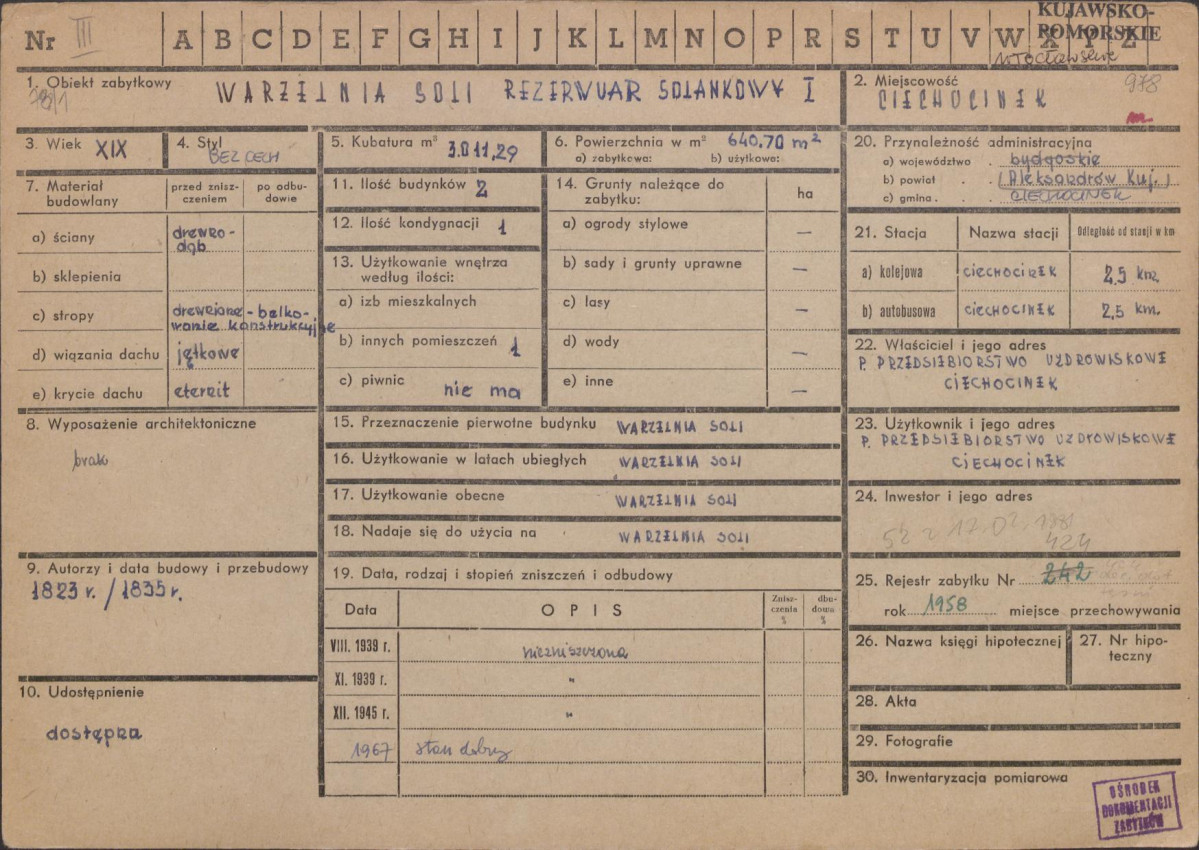 Nr III A B C D E F G H I J K L M N O P R S T U V W X Y Z
KUJAWSKO-
POMORSKIE
włocławskie
1. Obiekt zabytkowy WARZELNIA SOLI REZERWUAR SOLANKOWY I
2. Miejscowość 978
CIECHOCINEK
3. Wiek XIX
4. Styl
BEZ CECH
5. Kubatura m³ 3.011,29
6. Powierzchnia w m² 640,70 m²
a) zabytkowa: b) użytkowa:
7. Materiał budowlany
przed znisz-
czeniem
po odbu-
dowie
a) ściany drewno-
dąb
b) sklepienia
c) stropy drewniane - belko-
wanie konstrukcyjne
d) wiązania dachu jętkowe
e) krycie dachu eternit
8. Wyposażenie architektoniczne
brak
9. Autorzy i data budowy i przebudowy
1823 r. / 1835 r.
10. Udostępnienie
dostępna
11. Ilość budynków 2
12. Ilość kondygnacji 1
13. Użytkowanie wnętrza
według ilości:
a) izb mieszkalnych
b) innych pomieszczeń 1
c) piwnic nie ma
14. Grunty należące do
zabytku:
ha
a) ogrody stylowe —
b) sady i grunty uprawne —
c) lasy —
d) wody —
e) inne —
15. Przeznaczenie pierwotne budynku WARZELNIA SOLI
16. Użytkowanie w latach ubiegłych WARZELNIA SOLI
17. Użytkowanie obecne WARZELNIA SOLI
18. Nadaje się do użycia na WARZELNIA SOLI
19. Data, rodzaj i stopień zniszczeń i odbudowy
Data OPIS
Znisz-
czenia
%
dbu-
dowa
%
VIII. 1939 r. niezniszczona
XI. 1939 r. "
XII. 1945 r. "
1967 stan dobry
20. Przynależność administracyjna
a) województwo . bydgoskie
b) powiat . . Aleksandrów Kuj.
c) gmina . . CIECHOCINEK
21. Stacja Nazwa stacji Odległość od stacji w km
a) kolejowa CIECHOCINEK 2,5 km.
b) autobusowa CIECHOCINEK 2,5 km.
22. Właściciel i jego adres
P. PRZEDSIĘBIORSTWO UZDROWISKOWE
CIECHOCINEK
23. Użytkownik i jego adres
P. PRZEDSIĘBIORSTWO UZDROWISKOWE
CIECHOCINEK
24. Inwestor i jego adres
52 z 17.02.1981
424
25. Rejestr zabytku Nr 242
rok 1958 miejsce przechowywania
26. Nazwa księgi hipotecznej
27. Nr hipo-
teczny
28. Akta
29. Fotografie
30. Inwentaryzacja pomiarowa
OŚRODEK
DOKUMENTACJI
ZABYTKÓW